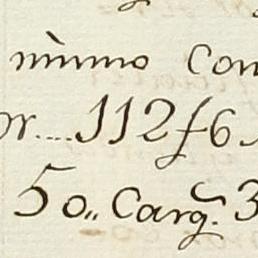 mimmo Con
or....112f6
50,, Carg. 3